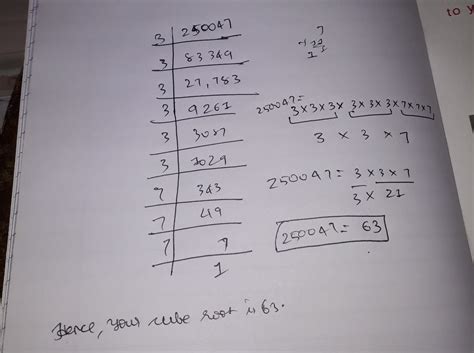 3 | 250047
3 | 83349
3 | 27,783
3 | 9261
3 | 3087
3 | 1029
7 | 343
7 | 49
7 | 7
1
7
1
250047= 3×3×3× 3×3×3×7×7×7
3 × 3 × 7
250047= 3×3×7
3× 21
250047= 63
Hence, your cube root is 63.
to y